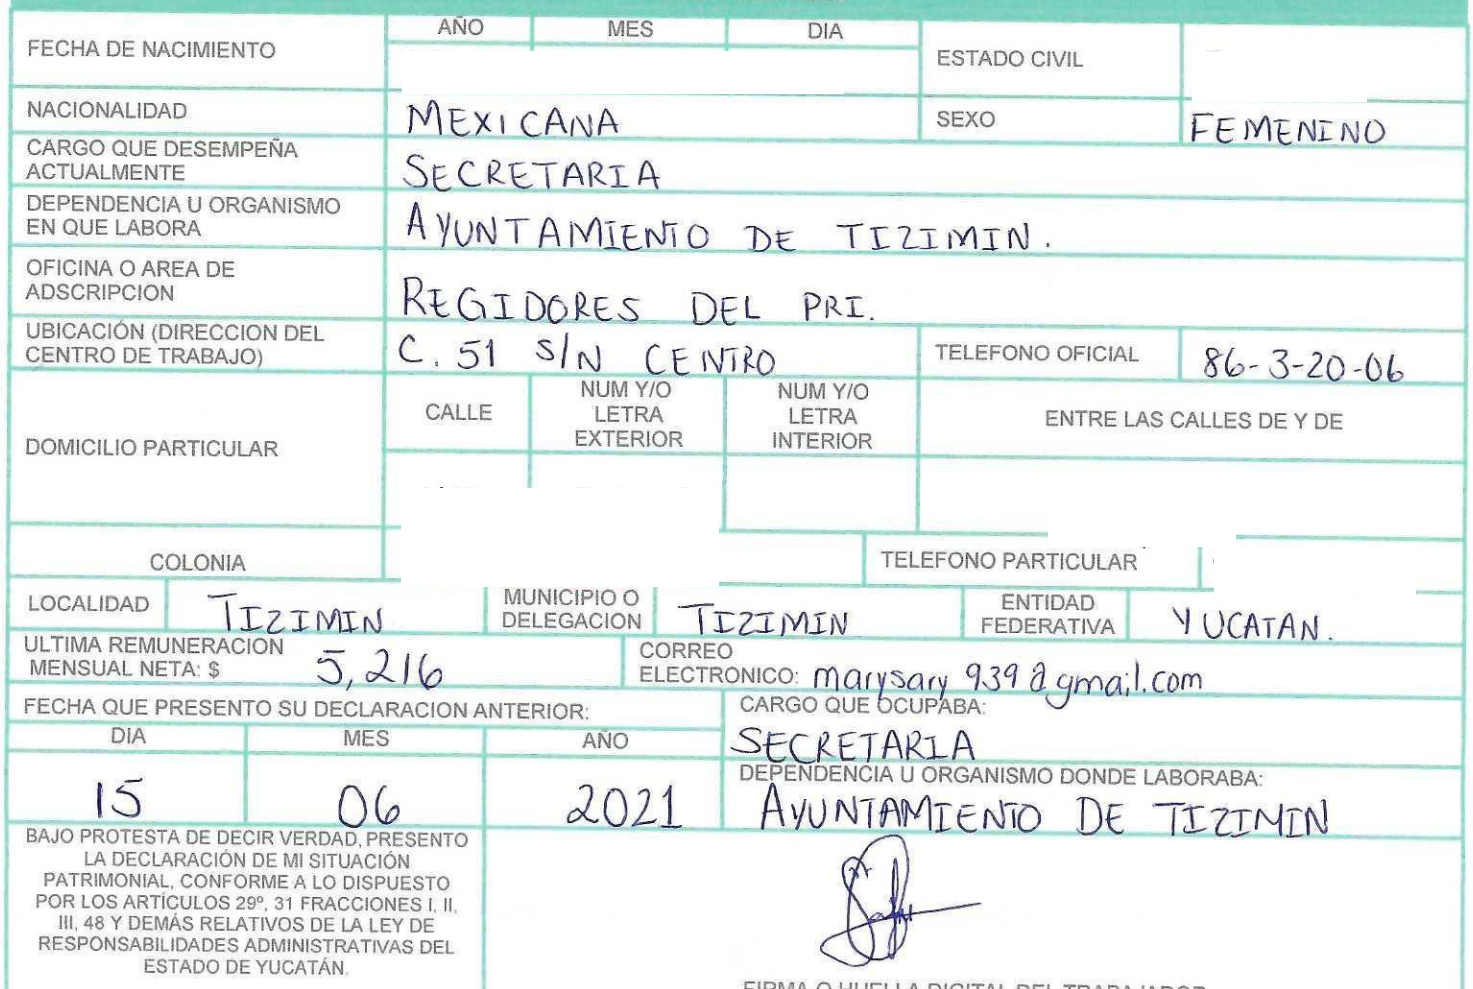 AÑO MES DIA
FECHA DE NACIMIENTO
ESTADO CIVIL
NACIONALIDAD MEXICANA SEXO FEMENINO
CARGO QUE DESEMPEÑA
ACTUALMENTE
SECRETARIA
DEPENDENCIA U ORGANISMO
EN QUE LABORA
AYUNTAMIENTO DE TIZIMIN.
OFICINA O AREA DE
ADSCRIPCION
REGIDORES DEL PRI.
UBICACIÓN (DIRECCION DEL
CENTRO DE TRABAJO)
C. 51 S/N CENTRO
TELEFONO OFICIAL 86-3-20-06
DOMICILIO PARTICULAR
CALLE
NUM Y/O
LETRA
EXTERIOR
NUM Y/O
LETRA
INTERIOR
ENTRE LAS CALLES DE Y DE
COLONIA
TELEFONO PARTICULAR
LOCALIDAD TIZIMIN
MUNICIPIO O
DELEGACION
TIZIMIN
ENTIDAD
FEDERATIVA
YUCATAN.
ULTIMA REMUNERACION
MENSUAL NETA: $ 5,216
CORREO
ELECTRONICO: marysary939@gmail.com
FECHA QUE PRESENTO SU DECLARACION ANTERIOR:
DIA MES AÑO
15 06 2021
CARGO QUE OCUPABA:
SECRETARIA
DEPENDENCIA U ORGANISMO DONDE LABORABA:
AYUNTAMIENTO DE TIZIMIN
BAJO PROTESTA DE DECIR VERDAD, PRESENTO
LA DECLARACIÓN DE MI SITUACIÓN
PATRIMONIAL, CONFORME A LO DISPUESTO
POR LOS ARTÍCULOS 29º, 31 FRACCIONES I, II,
III, 48 Y DEMÁS RELATIVOS DE LA LEY DE
RESPONSABILIDADES ADMINISTRATIVAS DEL
ESTADO DE YUCATÁN.
FIRMA O HUELLA DIGITAL DEL TRABAJADOR